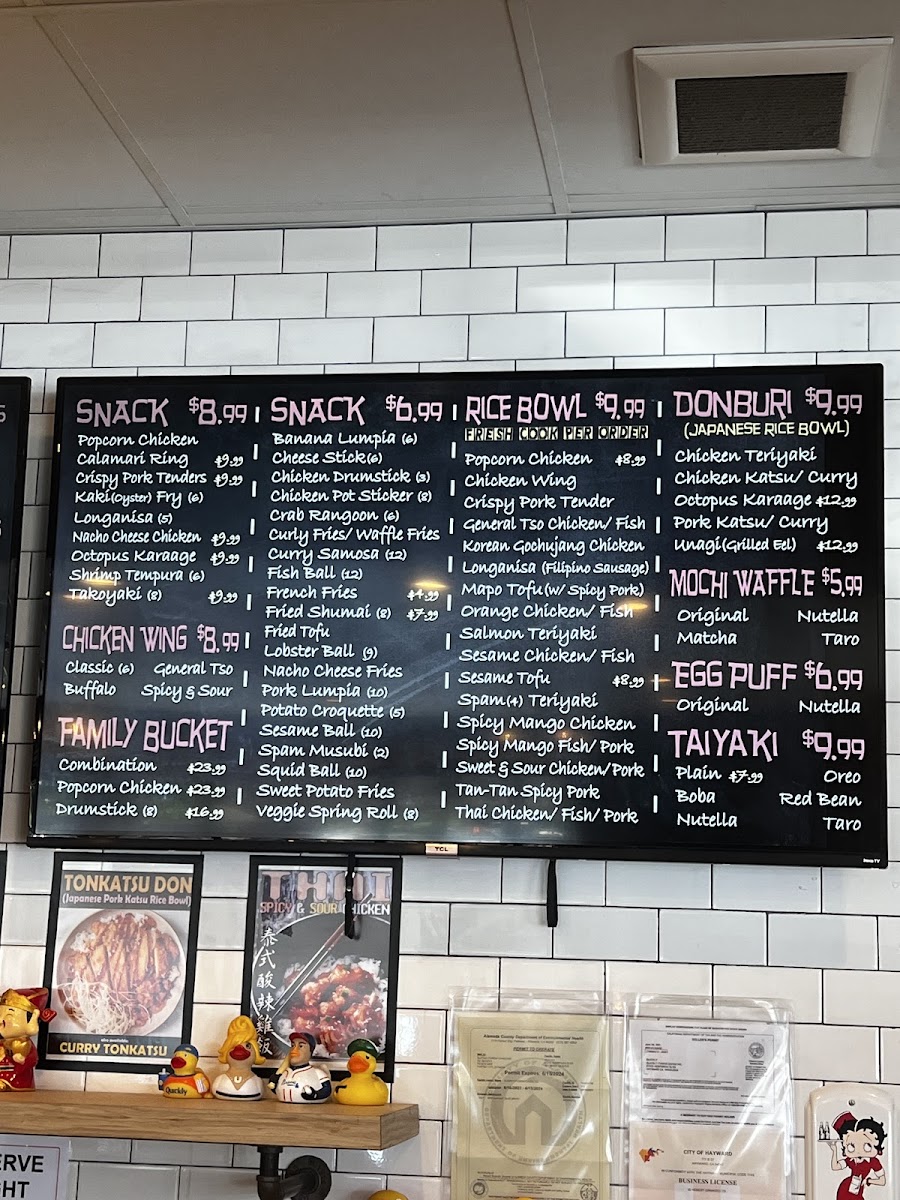 SNACK $8.99
Popcorn Chicken
Calamari Ring $9.99
Crispy Pork Tenders $9.99
Kaki(Oyster) Fry (6)
Longanisa (5)
Nacho Cheese Chicken $9.99
Octopus Karaage $9.99
Shrimp Tempura (6)
Takoyaki (8) $9.99
CHICKEN WING $8.99
Classic (6) General Tso
Buffalo Spicy & Sour
FAMILY BUCKET
Combination $23.99
Popcorn Chicken $23.99
Drumstick (8) $16.99
SNACK $6.99
Banana Lumpia (6)
Cheese Stick(6)
Chicken Drumstick (3)
Chicken Pot Sticker (8)
Crab Rangoon (6)
Curly Fries/ Waffle Fries
Curry Samosa (12)
Fish Ball (12)
French Fries $4.99
Fried Shumai (8) $7.99
Fried Tofu
Lobster Ball (9)
Nacho Cheese Fries
Pork Lumpia (10)
Potato Croquette (5)
Sesame Ball (10)
Spam Musubi (2)
Squid Ball (10)
Sweet Potato Fries
Veggie Spring Roll (8)
RICE BOWL $9.99
FRESH COOK PER ORDER
Popcorn Chicken $8.99
Chicken Wing
Crispy Pork Tender
General Tso Chicken/ Fish
Korean Gochujang Chicken
Longanisa (Filipino Sausage)
Mapo Tofu(w/ Spicy Pork)
Orange Chicken/ Fish
Salmon Teriyaki
Sesame Chicken/ Fish
Sesame Tofu $8.99
Spam(4) Teriyaki
Spicy Mango Chicken
Spicy Mango Fish/ Pork
Sweet & Sour Chicken/Pork
Tan-Tan Spicy Pork
Thai Chicken/ Fish/ Pork
DONBURI $9.99
(JAPANESE RICE BOWL)
Chicken Teriyaki
Chicken Katsu/ Curry
Octopus Karaage $12.99
Pork Katsu/ Curry
Unagi(Grilled Eel) $12.99
MOCHI WAFFLE $5.99
Original Nutella
Matcha Taro
EGG PUFF $6.99
Original Nutella
TAIYAKI $9.99
Plain $7.99 Oreo
Boba Red Bean
Nutella Taro
TCL
Roku TV
TONKATSU DON
(Japanese Pork Katsu Rice Bowl)
CURRY TONKATSU
THAI
SPICY & SOUR CHICKEN
泰式酸辣雞飯
Quickly
Alameda County Department of Environmental Health
PERMIT TO OPERATE
SELLER'S PERMIT
CITY OF HAYWARD
BUSINESS LICENSE
ERVE
HT